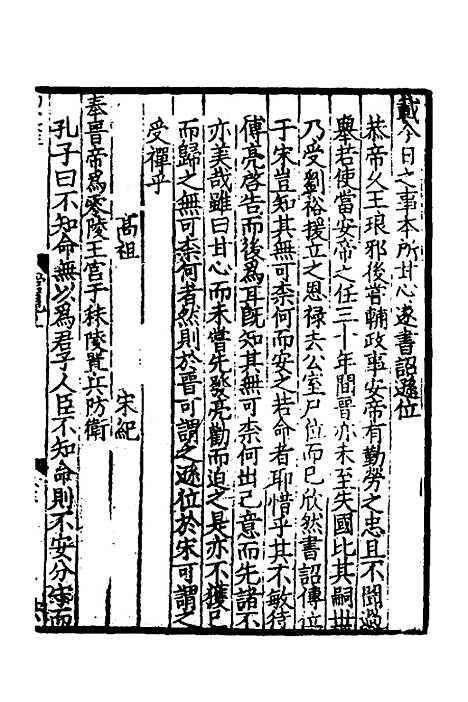 載今日之事本所甘心遂書詔遜位
恭帝久王琅邪後嘗輔政事安帝有勤勞之忠且不聞過
舉若使當安帝之任三十年間晉亦未至失國比其嗣世
乃受劉裕援立之恩祿去公室尸位而已欣然書詔傳位
于宋豈知其無可柰何而安之若命者耶惜乎其不敏待
傅亮啓告而後爲耳旣知其無可柰何出己意而先諸不
亦美哉雖曰甘心而未嘗先發亮勸而迫之是亦不獲已
而歸之無可柰何者然則於晉可謂之遜位於宋可謂之
受禪乎
高祖 宋紀
奉晉帝爲零陵王宮于秣陵置兵防衛
孔子曰不知命無以爲君子人臣不知命則不安分守而